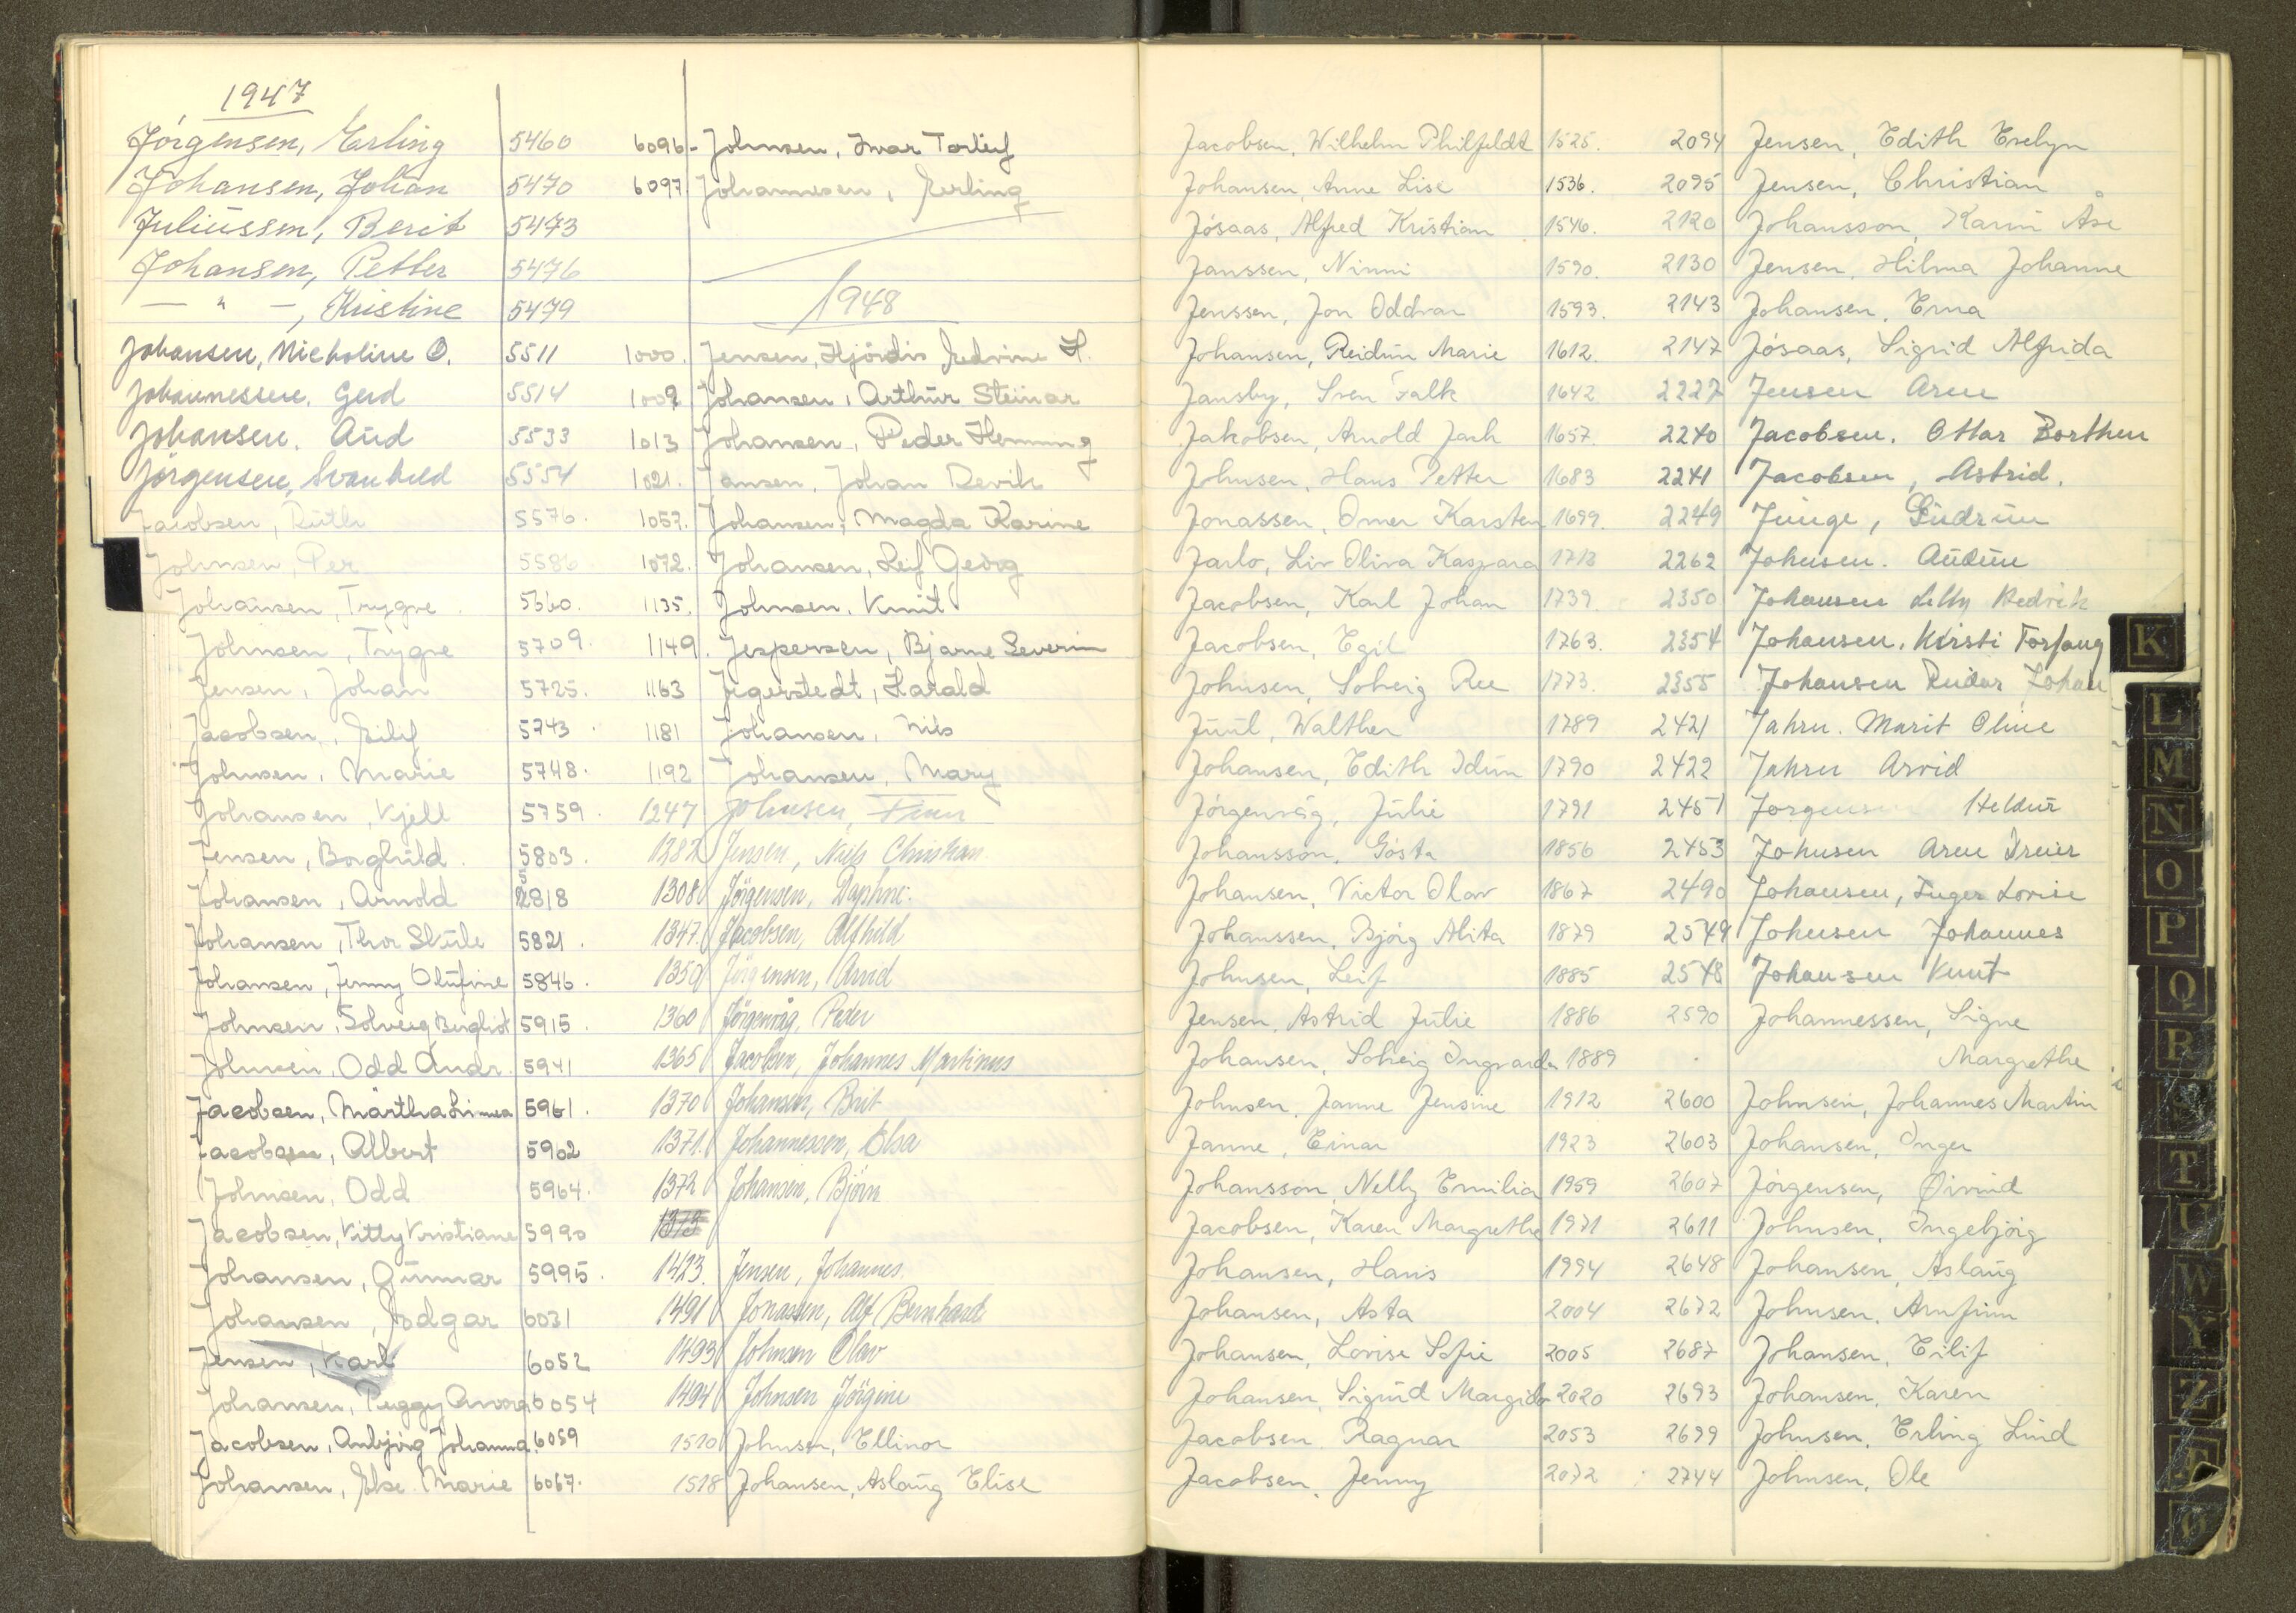 1947
Jörgensen, Erling 5460
Johansen, Johan 5470
Juliussen, Berit 5473
Johansen, Petter 5476
— " —, Kristine 5479
Johansen, Nicholine O. 5511
Johannessen. Gerd 5514
Johansen. Aud 5533
Jörgensen, Svanhild 5554
Jacobsen, Ruth 5576.
Johnsen, Per 5586
Johansen, Trygve. 5660.
Johnsen, Trygve 5709.
Jensen, Johan 5725.
Jacobsen, Eilif 5743.
Johnsen, Marie 5748.
Johansen, Kjell 5759.
Jensen, Borghild. 5803.
Johansen, Arnold 5818
Johansen, Thor Sture 5821.
Johansen, Jenny Olufine 5846.
Johnsen, Solveig Bergliot 5915.
Johnsen, Odd Andr. 5941
Jacobsen, Märtha Linnea 5961.
Jacobsen, Albert 5962
Johnsen, Odd 5964.
Jacobsen, Kitty Kristiane 5990
Johansen, Gunnar 5995.
Johansen, Edgar 6031
Jensen, Karl 6052
Johansen, Peggy 6054
Jacobsen, Anbjörg Johanna. 6059
Johansen, Else Marie 6067.
6096- Johnsen, Ivar Torleif
6097. Johannesen, Erling
1948
1000. Jensen, Hjördis Edvine H.
1009 Johansen, Arthur Steinar
1013 Johansen, Peder Henning
1021. Jansen, Johan Devik
1057. Johansen, Magda Karine
1072. Johansen, Leif Georg
1135. Johnsen. Knut
1149. Jespersen, Bjarne Severin
1163 Jegerstedt, Harald
1181 Johansen, Nils
1192 Johansen, Mary
1247 Johnsen, Finn
1282 Jensen, Niels Christian.
1308 Jörgensen, Daphne.
1347. Jacobsen, Alfhild
1350 Jörgensen, Arvid
1360 Jörgenvåg, Peder
1365 Jacobsen, Johannes Martinus
1370 Johansen, Brit
1371. Johannessen, Elsa
1372 Johansen, Björn
1373
1423. Jensen, Johannes.
1491 Jonassen, Alf Bernhard
1493 Johnsen Olav
1494 Johnsen Jörgine
1510 Johnsen, Ellinor
1518 Johansen, Aslaug Elise
Jacobsen, Wilhelm Philfeldt 1525.
Johansen, Anne Lise 1536.
Jösaas, Alfred Kristian 1546.
Janssen, Ninni 1590.
Jenssen, Jon Oddvar 1593.
Johansen, Reidun Marie 1612.
Jansby, Sven Falk 1642
Jakobsen, Arnold Jarh 1657.
Johnsen, Hans Petter 1683
Jonassen, Omer Karsten 1699.
Jarlo, Liv Oliva Kaspara 1713
Jacobsen, Karl Johan 1739
Jacobsen, Egil 1763.
Johnsen, Solveig Ree 1773.
Juul, Walther 1789
Johansen, Edith Idun 1790
Jörgenvåg, Julie 1791
Johansson, Gösta 1856
Johansen, Victor Olav 1867
Johanssen, Bjørg Alita 1879
Johnsen, Leif 1885
Jensen, Astrid Julie 1886
Johansen, Solveig Ingvarda 1889
Johnsen, Janne Jensine 1912
Janne, Einar 1923
Johansson, Nelly Emilia 1959
Jacobsen, Karen Margrethe 1971
Johansen, Hans 1994
Johansen, Asta 2004
Johansen, Lovise Sofie 2005
Johansen, Sigrud Margido 2020
Jacobsen Ragnar 2053
Jacobsen, Jenny 2072
2094 Jensen, Edith Evelyn
2095 Jensen, Christian
2120 Johansson, Karin Åse
2130 Jensen, Hilma Johanne
2143 Johansen, Erna
2147 Jösaas, Sigrid Alfrida
2227 Jensen Arne
2240 Jacobsen. Ottar Borthen
2241 Jacobsen, Astrid.
2249 Junge, Gudrun
2262 Johnsen. Audun
2350 Johansen Lilly Hedvik
2354 Johansen. Kirsti Torfang
2355 Johansen Reidar Johan
2421 Jahrn. Marit Oline
2422 Jahrn Arvid
2451 Jorgensen Heldur
2453 Johnsen Arne Dreier
2490 Johansen, Inger Lovise
2549 Johnsen Johannes
2548 Johansen Knut
2590 Johannessen, Signe
Margrethe
2600 Johnsen, Johannes Martin
2603 Johansen, Inger
2607 Jörgensen, Øivind
2611 Johnsen, Ingebjörg
2648 Johansen, Aslaug
2672 Johnsen. Arnfinn
2687 Johansen, Eilif
2693 Johansen, Karen
2699 Johnsen, Erling Lind
2744 Johnsen, Ole
K
L
M
N
O
P
Q
R
S
T
U
W
Y
Z
Æ
Ø